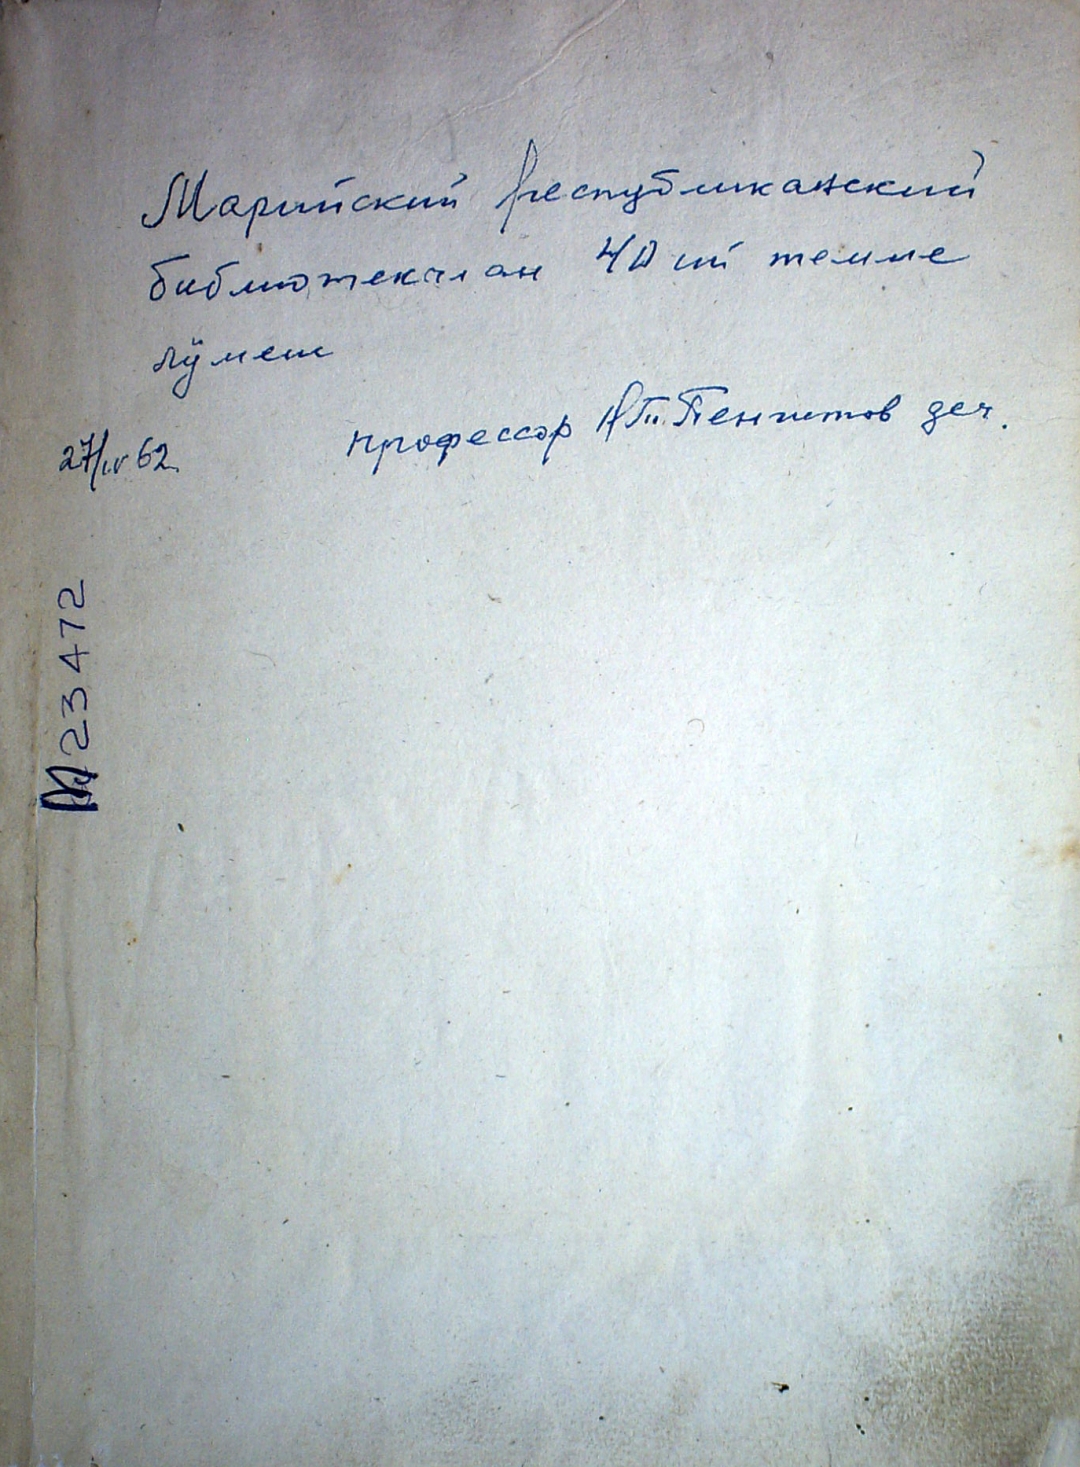 Марийский республиканский
библиотекылан 40 ий темме
лӱмеш
профессор Н.Т. Пенгитов деч.
27/IV 62.
М 23472